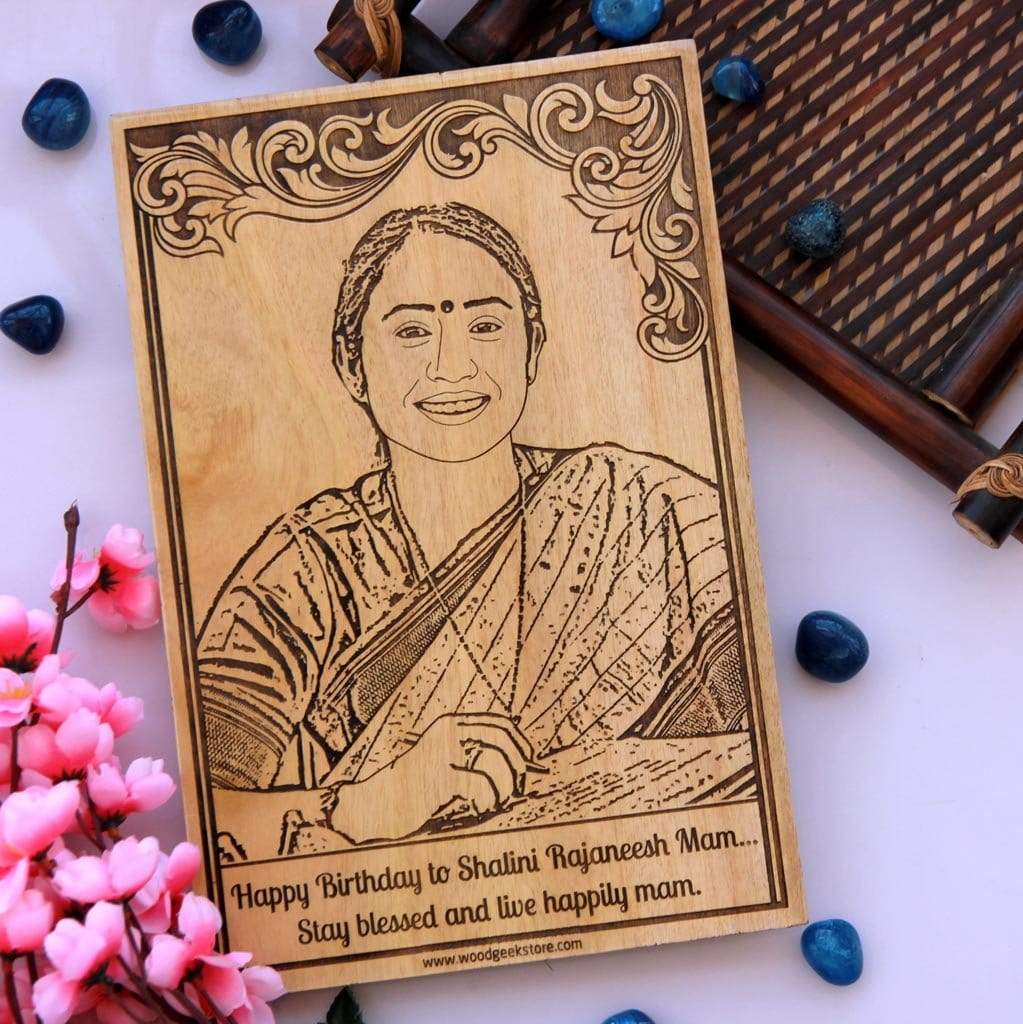 Happy Birthday to Shalini Rajaneesh Mam...
Stay blessed and live happily mam.
www.woodgeekstore.com